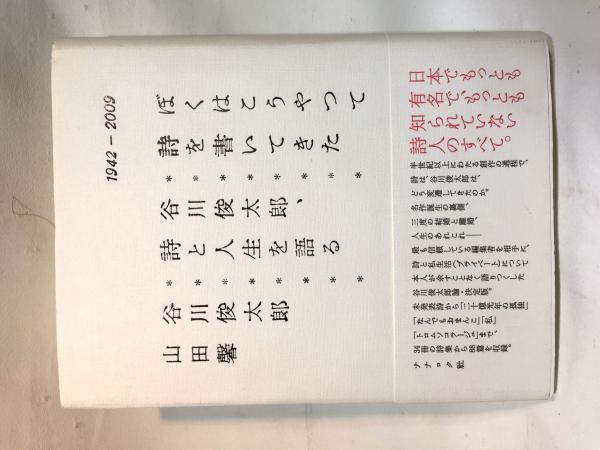 1942－2009
ぼくはこうやって
＊詩を書いてきた＊
＊谷川俊太郎、＊
＊詩と人生を語る＊
＊谷川俊太郎＊
山田馨
日本でもっとも
有名で、もっとも
知られていない
詩人のすべて。
半世紀以上にわたる創作の過程で、
詩は、谷川俊太郎は、
どう変遷してきたのか。
名作誕生の裏側、
三度の結婚と離婚、
人生のあれこれ――
最も信頼している編集者を相手に、
詩と私生活（プライベート）について
本人が余すことなく語りつくした
谷川俊太郎論・決定版。
未発表詩から「二十億光年の孤独」
「なんでもおまんこ」「私」
「トロムソコラージュ」まで、
34冊の詩集から88篇を収録。
ナナロク社